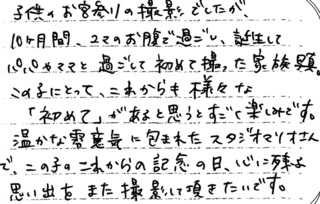 子供のお宮参りの撮影でしたが、
10ヶ月間、ママのお腹で過ごし、誕生して
パパやママと過ごして初めて撮った家族写真。
この子にとって、これからも様々な
「初めて」があると思うとすごく楽しみです。
温かな雰囲気に包まれたスタジオマリオさん
で、この子のこれからの記念の日、心に残る
思い出を、また撮影して頂きたいです。